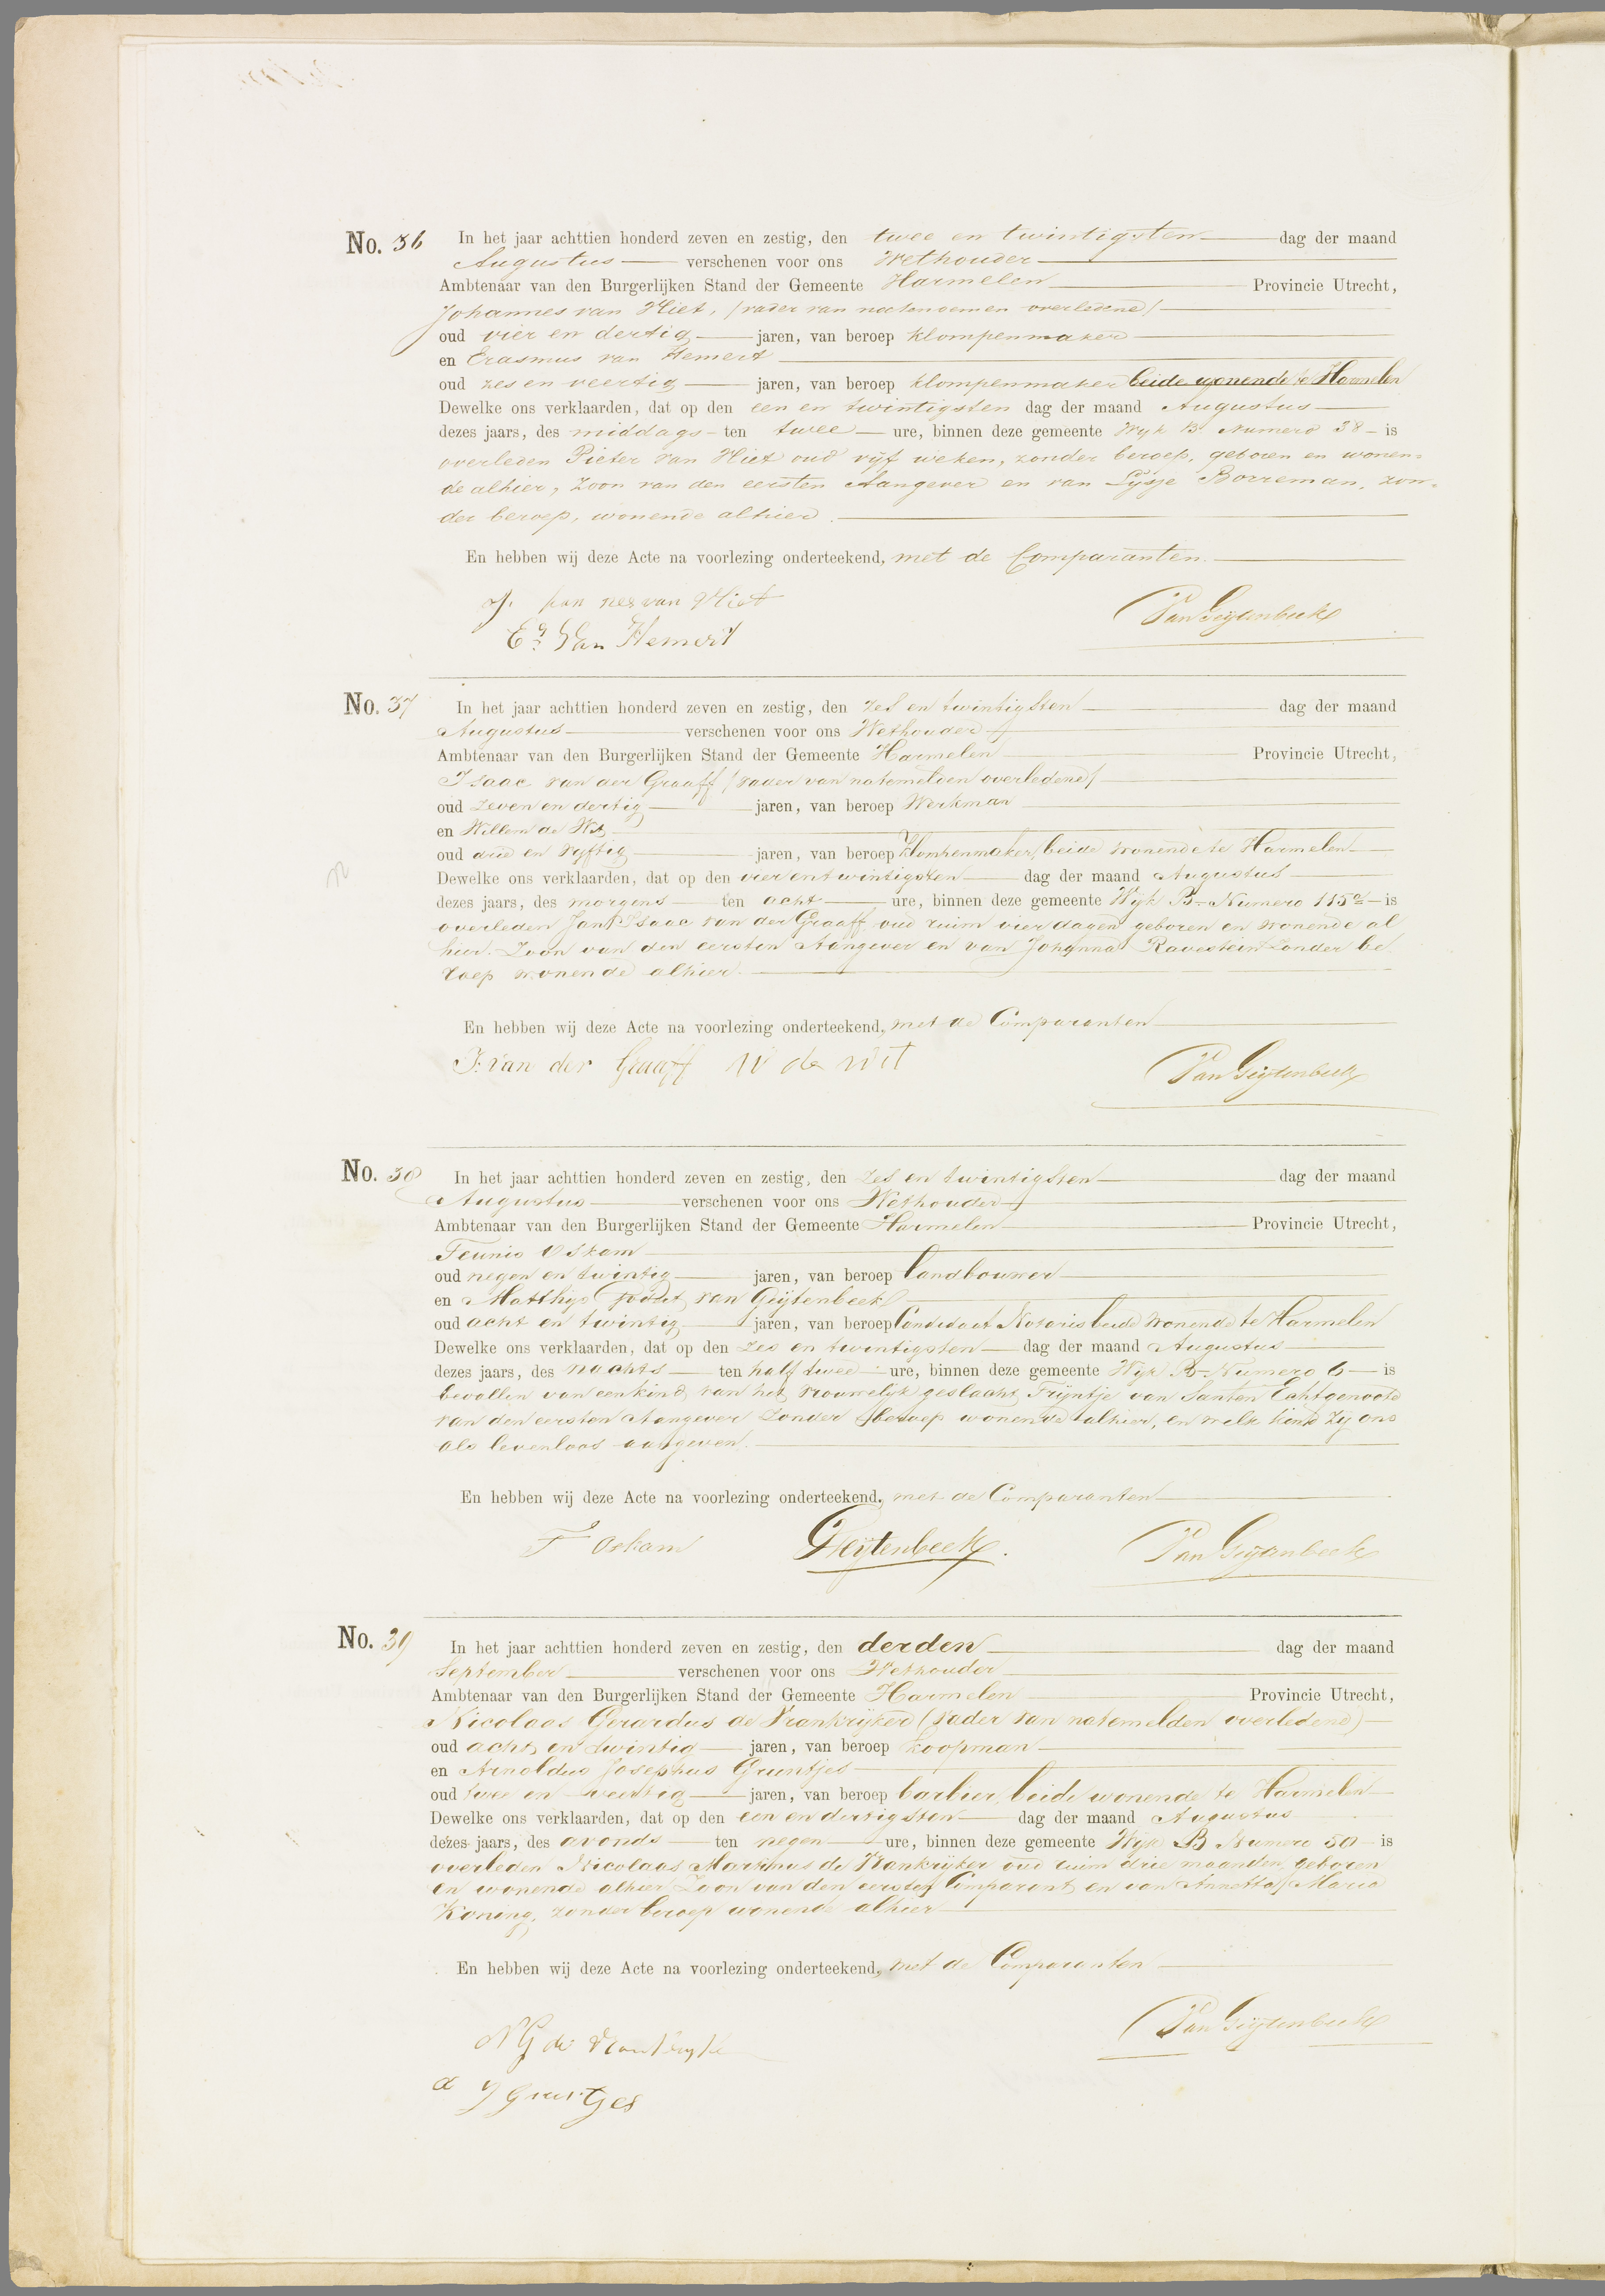 No. 36 In het jaar achttien honderd zeven en zestig, den twee en twintigsten dag der maand
Augustus verschenen voor ons Wethouder
Ambtenaar van den Burgerlijken Stand der Gemeente Harmelen Provincie Utrecht,
Johannes van Vliet, (vader van nactenoemen overledene)
oud vier en dertig jaren, van beroep klompenmaker
en Erasmus van Hemert
oud zes en veertig jaren, van beroep klompenmaker beide wonende te Harmelen
Dewelke ons verklaarden, dat op den een en twintigsten dag der maand Augustus
dezes jaars, des middags ten twee ure, binnen deze gemeente Wyk B Numero 38 is
overleden Pieter van Vliet oud vyf weken, zonder beroep, geboren en wonen=
de alhier, zoon van den eersten Aangever en van Lysje Borreman, zon=
der beroep, wonende alhier.
En hebben wij deze Acte na voorlezing onderteekend, met de Comparanten.
J. han nes van Vliet
Es Van Hemert
Van Geijtenbeek
No. 37 In het jaar achttien honderd zeven en zestig, den zes en twintigsten dag der maand
Augustus verschenen voor ons Wethouder
Ambtenaar van den Burgerlijken Stand der Gemeente Harmelen Provincie Utrecht,
Isaac van der Graaff (vader van natemelden overledene)
oud zeven en dertig jaren, van beroep Werkman
en Willem de Wit
oud drie en vyftig jaren, van beroep Klompenmaker, beide wonende te Harmelen
Dewelke ons verklaarden, dat op den vier en twintigsten dag der maand Augustus
dezes jaars, des morgens ten acht ure, binnen deze gemeente Wyk B Numero 115 is
overleden Jan Isaac van der Graaff oud ruim vier dagen geboren en wonende al
hier. Zoon van den eersten Aangever en van Johanna Ravestein zonder be
roep wonende alhier.
En hebben wij deze Acte na voorlezing onderteekend, met de Comparanten
I: van der Graaff W de wit
Van Geijtenbeek
No. 38 In het jaar achttien honderd zeven en zestig, den zes en twintigsten dag der maand
Augustus verschenen voor ons Wethouder
Ambtenaar van den Burgerlijken Stand der Gemeente Harmelen Provincie Utrecht,
Teunis Oskam
oud negen en twintig jaren, van beroep Landbouwer
en Matthijs van Geijtenbeek
oud acht en twintig jaren, van beroep Candidaat Notaris beide wonende te Harmelen
Dewelke ons verklaarden, dat op den zes en twintigsten dag der maand Augustus
dezes jaars, des nachts ten half twee ure, binnen deze gemeente Wyk B Numero 6 is
bevallen van een kind van het vrouwelijk geslacht Trijntje van Santen Echtgenoote
van den eersten Aangever zonder beroep wonende alhier, en welk kind zij ons
als levenloos aangeven.
En hebben wij deze Acte na voorlezing onderteekend, met de Comparanten
T Oskam
Geijtenbeek.
Van Geijtenbeek
No. 39 In het jaar achttien honderd zeven en zestig, den derden dag der maand
September verschenen voor ons Wethouder
Ambtenaar van den Burgerlijken Stand der Gemeente Harmelen Provincie Utrecht,
Nicolaas Gerardus de Vrankrijker (vader van natemelden overledene)
oud acht en twintig jaren, van beroep koopman
en Arnoldus Josephus Gruntjes
oud twee en veertig jaren, van beroep barbier, beide wonende te Harmelen
Dewelke ons verklaarden, dat op den een en dertigsten dag der maand Augustus
dezes jaars, des avonds ten negen ure, binnen deze gemeente Wyk B Numero 50 is
overleden Nicolaas Marinus de Vrankrijker oud ruim drie maanden, geboren
en wonende alhier Zoon van den eersten Comparant en van Annetta Maria
Koning, zonder beroep wonende alhier
En hebben wij deze Acte na voorlezing onderteekend, met de Comparanten
N G de Vrankryke
Van Geijtenbeek
a J Gruntjes